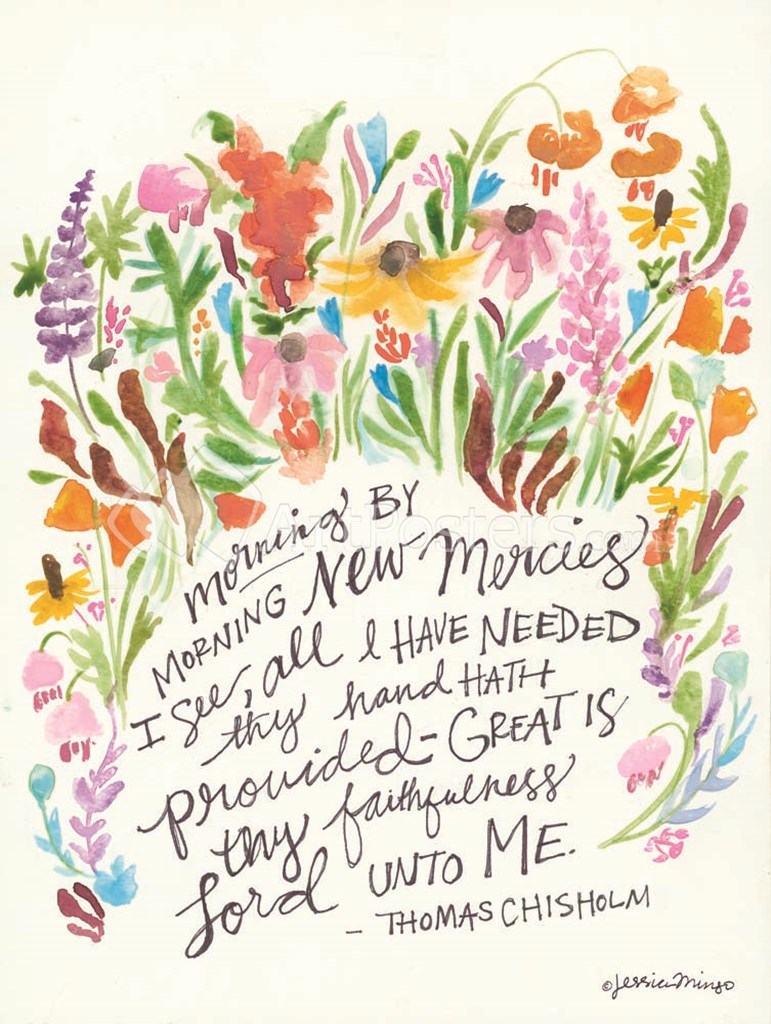 morning BY
MORNING NEW Mercies
I see, all I HAVE NEEDED
thy hand HATH
provided - GREAT IS
thy faithfulness
Lord UNTO ME.
- THOMAS CHISHOLM
©Jessica Mingo
ArtPosters.com